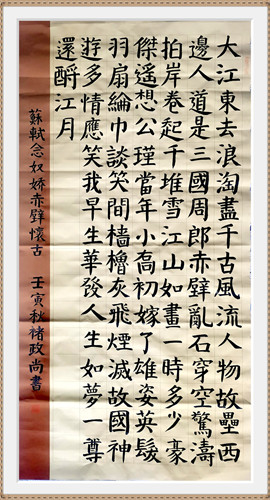 大江東去浪淘盡千古風流人物故壘西
邊人道是三國周郎赤壁亂石穿空驚濤
拍岸卷起千堆雪江山如畫一時多少豪
傑遙想公瑾當年小喬初嫁了雄姿英髮
羽扇綸巾談笑間檣櫓灰飛煙滅故國神
遊多情應笑我早生華發人生如夢一尊
還酹江月
蘇軾念奴嬌赤壁懷古 壬寅秋褚政尚書